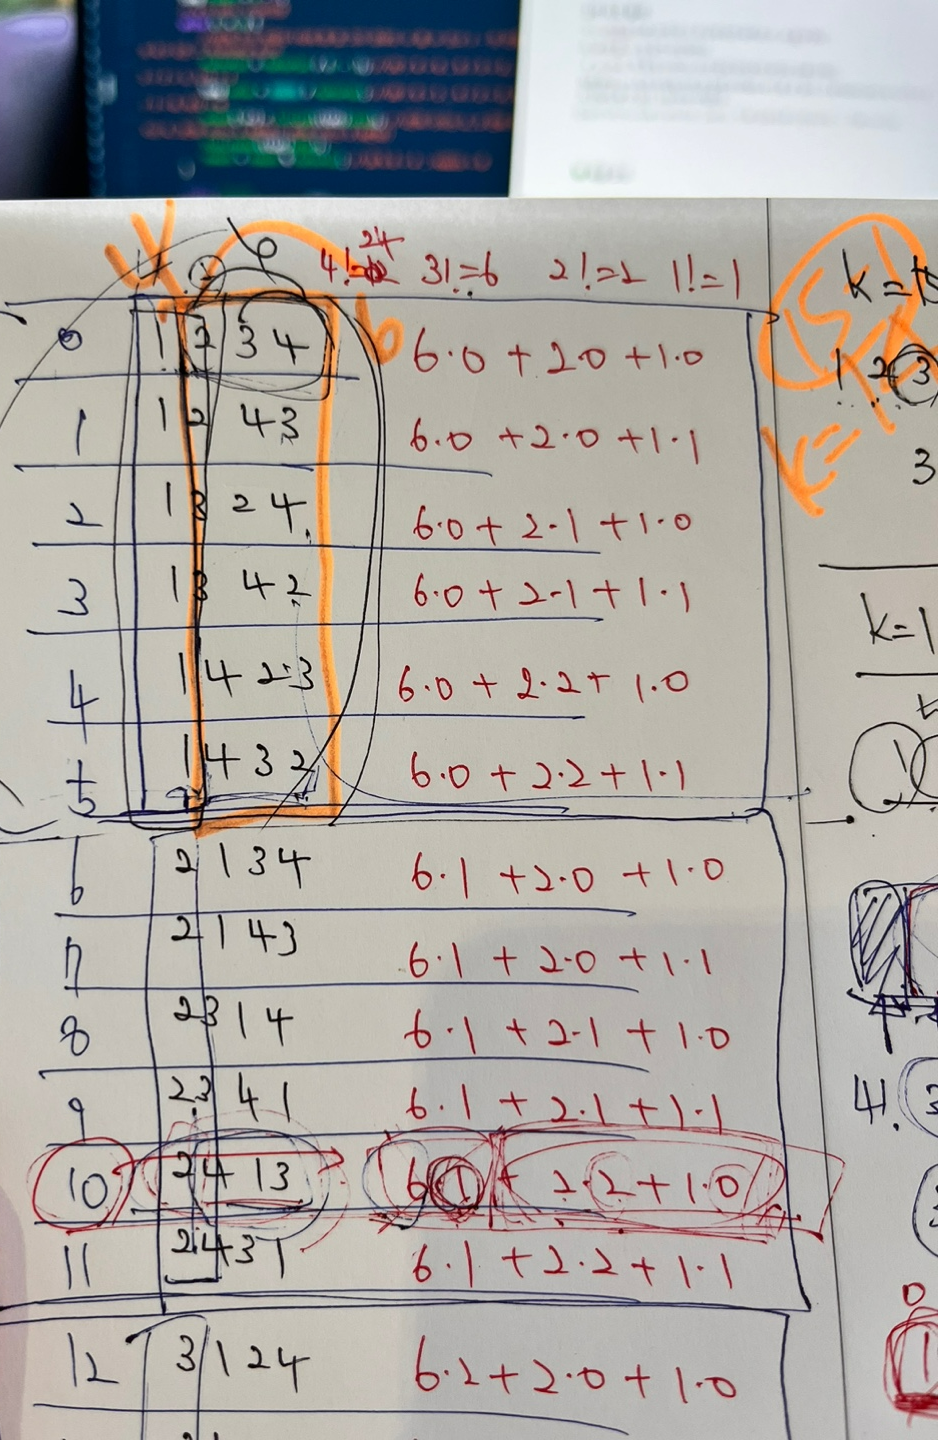 6
4!= 24 3!=6 2!=2 1!=1
k=15
0 1 2 3 4 6 6·0 + 2·0 + 1·0
1 2 3
1 1 2 4 3 6·0 + 2·0 + 1·1
k=1
3
2 1 3 2 4 6·0 + 2·1 + 1·0
3 1 3 4 2 6·0 + 2·1 + 1·1
k=1
4 1 4 2 3 6·0 + 2·2 + 1·0
5 1 4 3 2 6·0 + 2·2 + 1·1
1
6 2 1 3 4 6·1 + 2·0 + 1·0
7 2 1 4 3 6·1 + 2·0 + 1·1
8 2 3 1 4 6·1 + 2·1 + 1·0
9 2 3 4 1 6·1 + 2·1 + 1·1
4!. 3
10 2 4 1 3 6·1 + 2·2 + 1·0
11 2 4 3 1 6·1 + 2·2 + 1·1
0
1
12 3 1 2 4 6·2 + 2·0 + 1·0